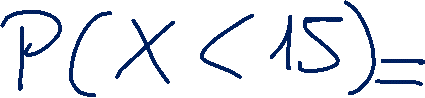 P(X < 15) =